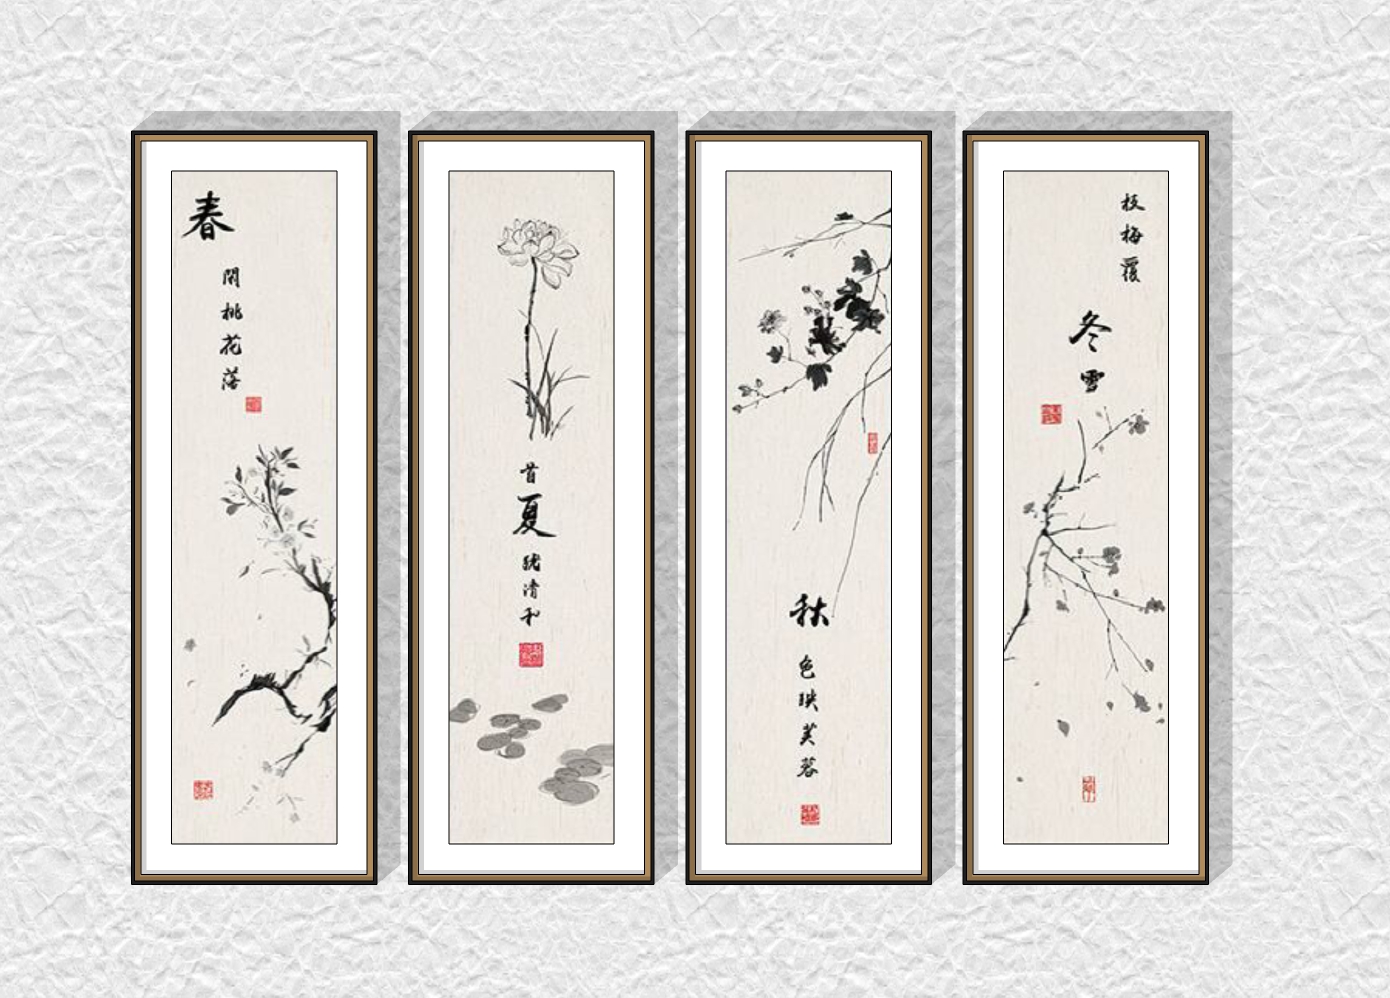 春
閑桃花落
首夏猶清和
秋
色映芙蓉
枝梅覆
冬雪